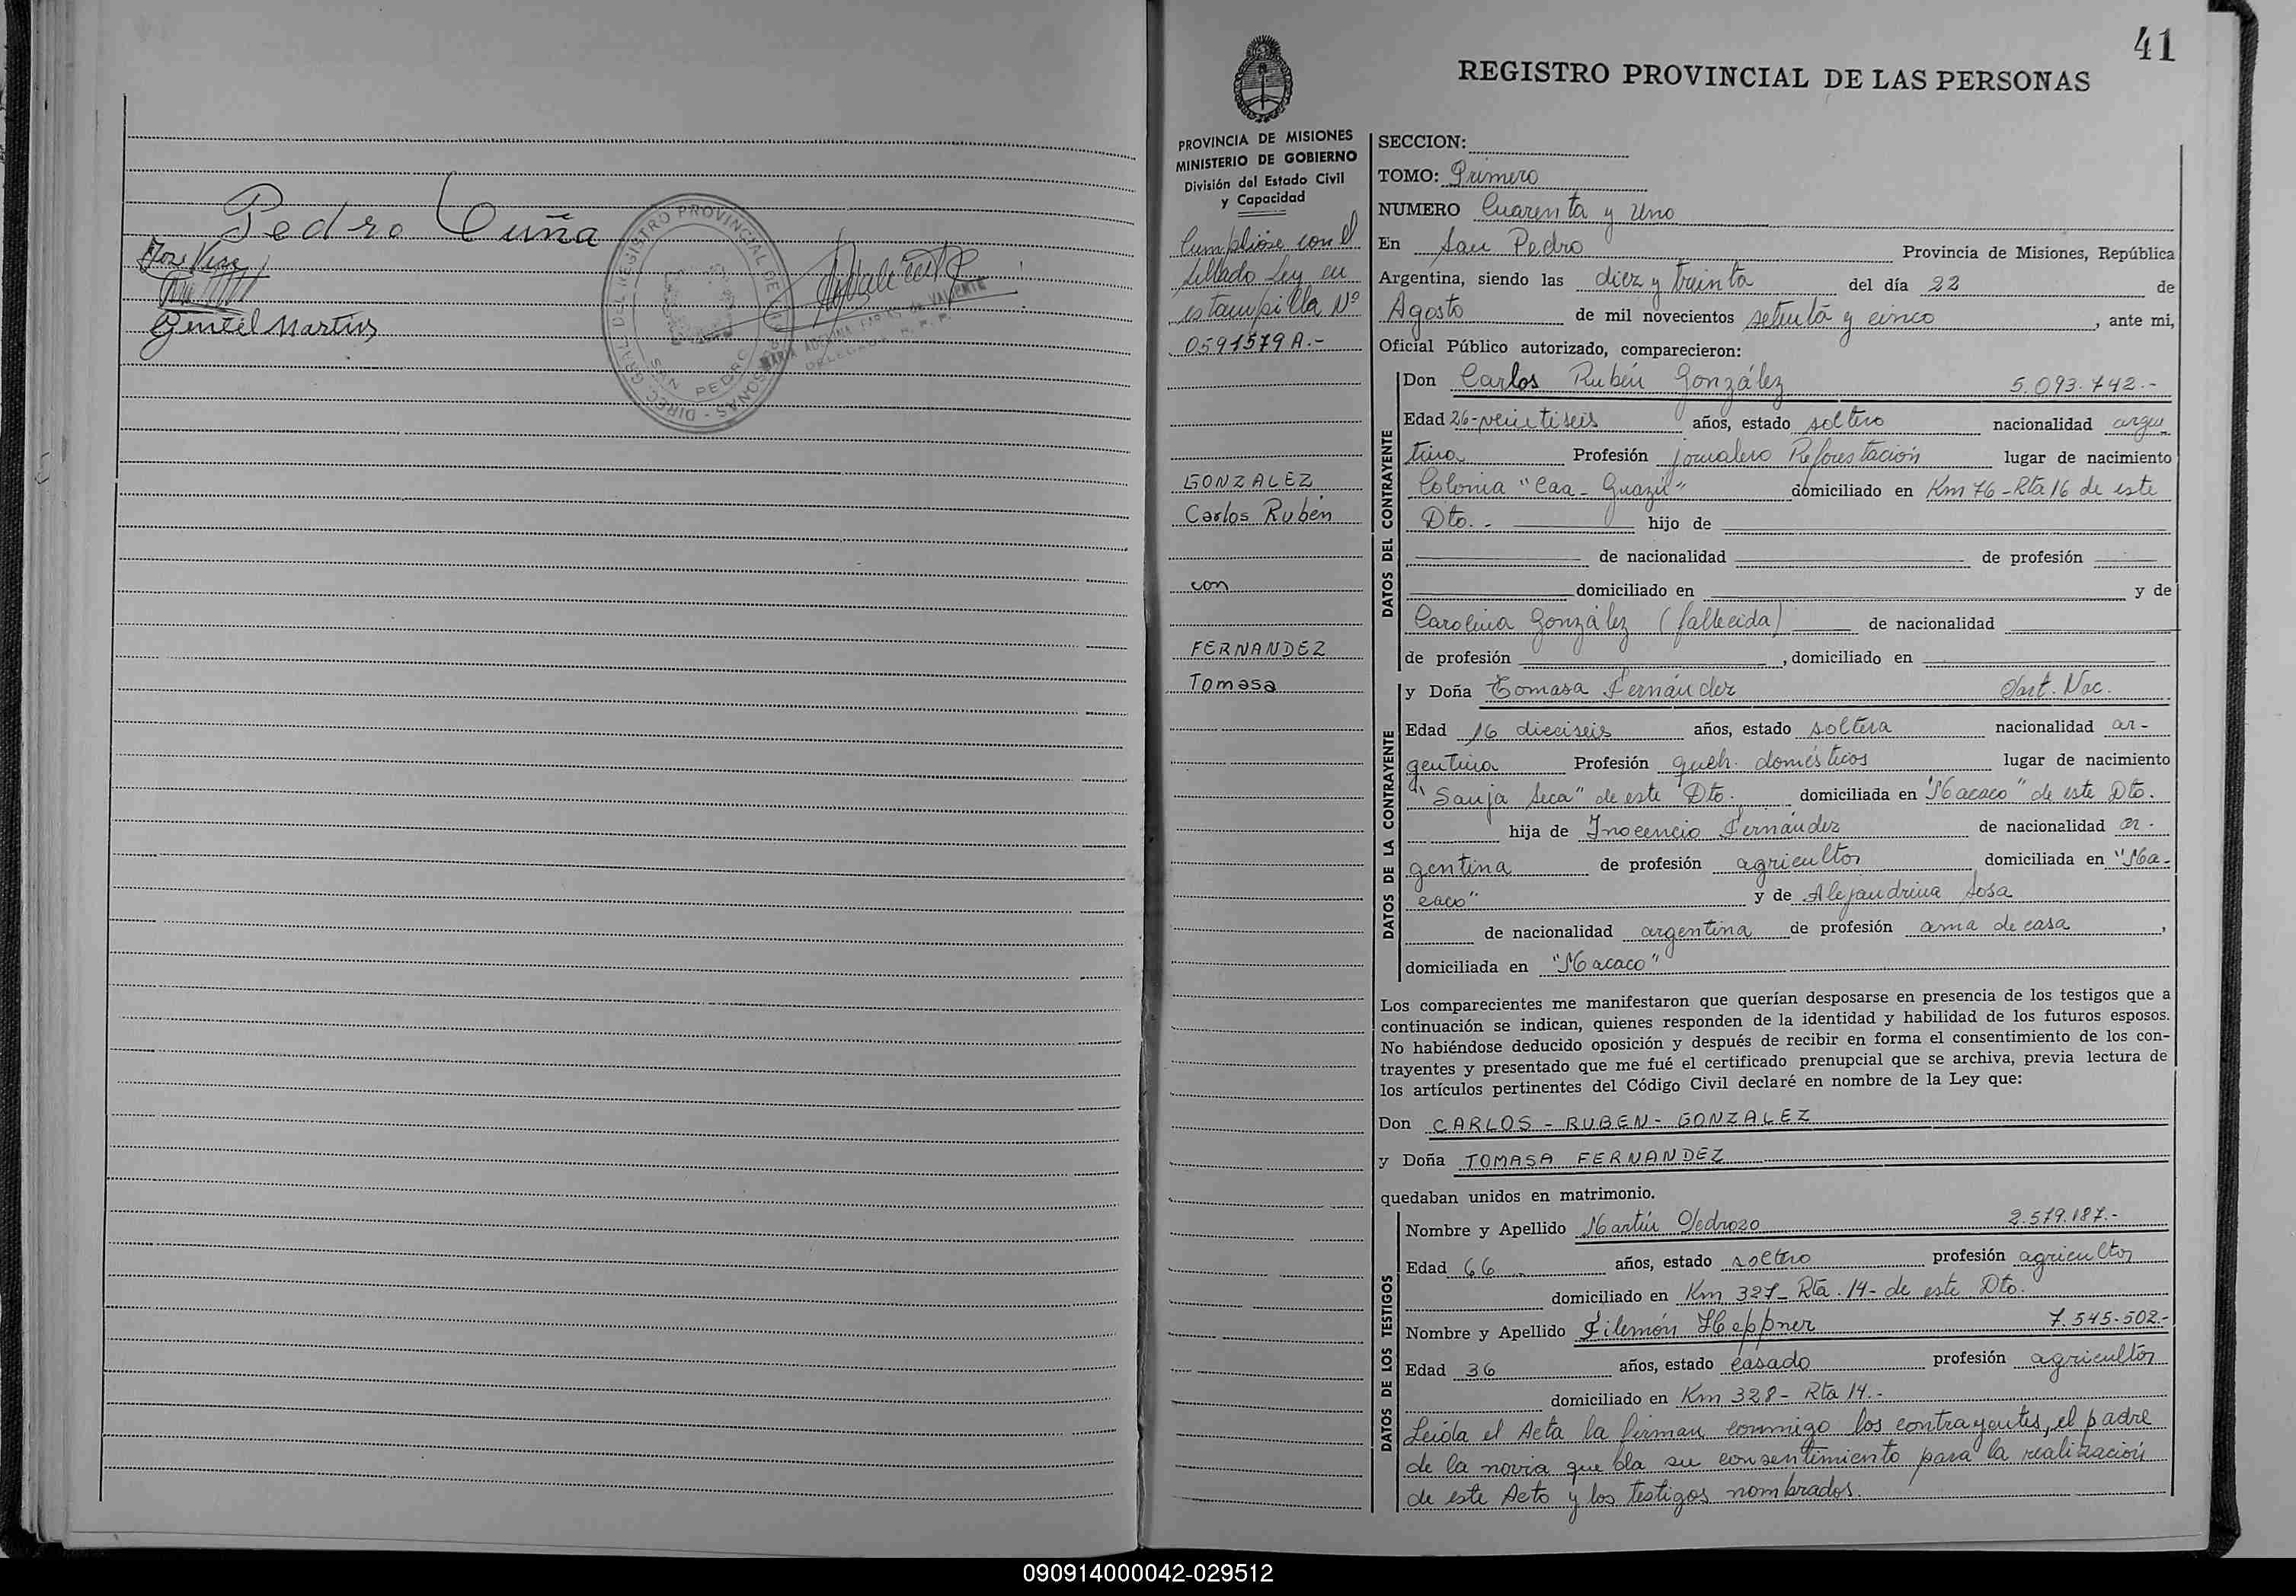 Pedro Cuña
José Vera
Gentil Martins
DIREC. GRAL DEL REGISTRO PROVINCIAL DE PERSONAS
SAN PEDRO
MARIA ADELINA FARIAS de VALIENTE
DELEGADA R. P. P.
41
REGISTRO PROVINCIAL DE LAS PERSONAS
PROVINCIA DE MISIONES
MINISTERIO DE GOBIERNO
División del Estado Civil
y Capacidad
Cumplióse con el
sellado Ley en
estampilla Nº
0591579 A.-
GONZALEZ
Carlos Rubén
con
FERNANDEZ
Tomasa
SECCION:
TOMO: Primero
NUMERO Cuarenta y Uno
En San Pedro Provincia de Misiones, República
Argentina, siendo las diez y treinta del día 22 de
Agosto de mil novecientos setenta y cinco, ante mi,
Oficial Público autorizado, comparecieron:
DATOS DEL CONTRAYENTE
Don Carlos Rubén González 5.093.742.-
Edad 26-veintiseis años, estado soltero nacionalidad argen
tina Profesión jornalero Reforestación lugar de nacimiento
Colonia "Caa-Guazú" domiciliado en Km 76-Rta 16 de este
Dto.- hijo de
de nacionalidad de profesión
domiciliado en y de
Carolina González (fallecida) de nacionalidad
de profesión , domiciliado en
DATOS DE LA CONTRAYENTE
y Doña Tomasa Fernández Part. Nac.
Edad 16 dieciseis años, estado soltera nacionalidad ar-
gentina Profesión queh. domésticos lugar de nacimiento
"Sanja Seca" de este Dto. domiciliada en "Macaco" de este Dto.
hija de Inocencio Fernández de nacionalidad ar-
gentina de profesión agricultor domiciliada en "Ma-
caco" y de Alejandrina Sosa
de nacionalidad argentina de profesión ama de casa ,
domiciliada en "Macaco"
Los comparecientes me manifestaron que querían desposarse en presencia de los testigos que a
continuación se indican, quienes responden de la identidad y habilidad de los futuros esposos.
No habiéndose deducido oposición y después de recibir en forma el consentimiento de los con-
trayentes y presentado que me fué el certificado prenupcial que se archiva, previa lectura de
los artículos pertinentes del Código Civil declaré en nombre de la Ley que:
Don CARLOS - RUBEN - GONZALEZ
y Doña TOMASA FERNANDEZ
quedaban unidos en matrimonio.
DATOS DE LOS TESTIGOS
Nombre y Apellido Martín Pedrozo 2.579.187.-
Edad 66 - años, estado soltero profesión agricultor
domiciliado en Km 327- Rta.14- de este Dto.
Nombre y Apellido Filemón Heppner 7.545.502.-
Edad 36 años, estado casado profesión agricultor
domiciliado en Km 328- Rta 14.-
Leída el Acta la firman conmigo los contrayentes, el padre
de la novia que da su consentimiento para la realización
de este Acto y los testigos nombrados.
090914000042-029512